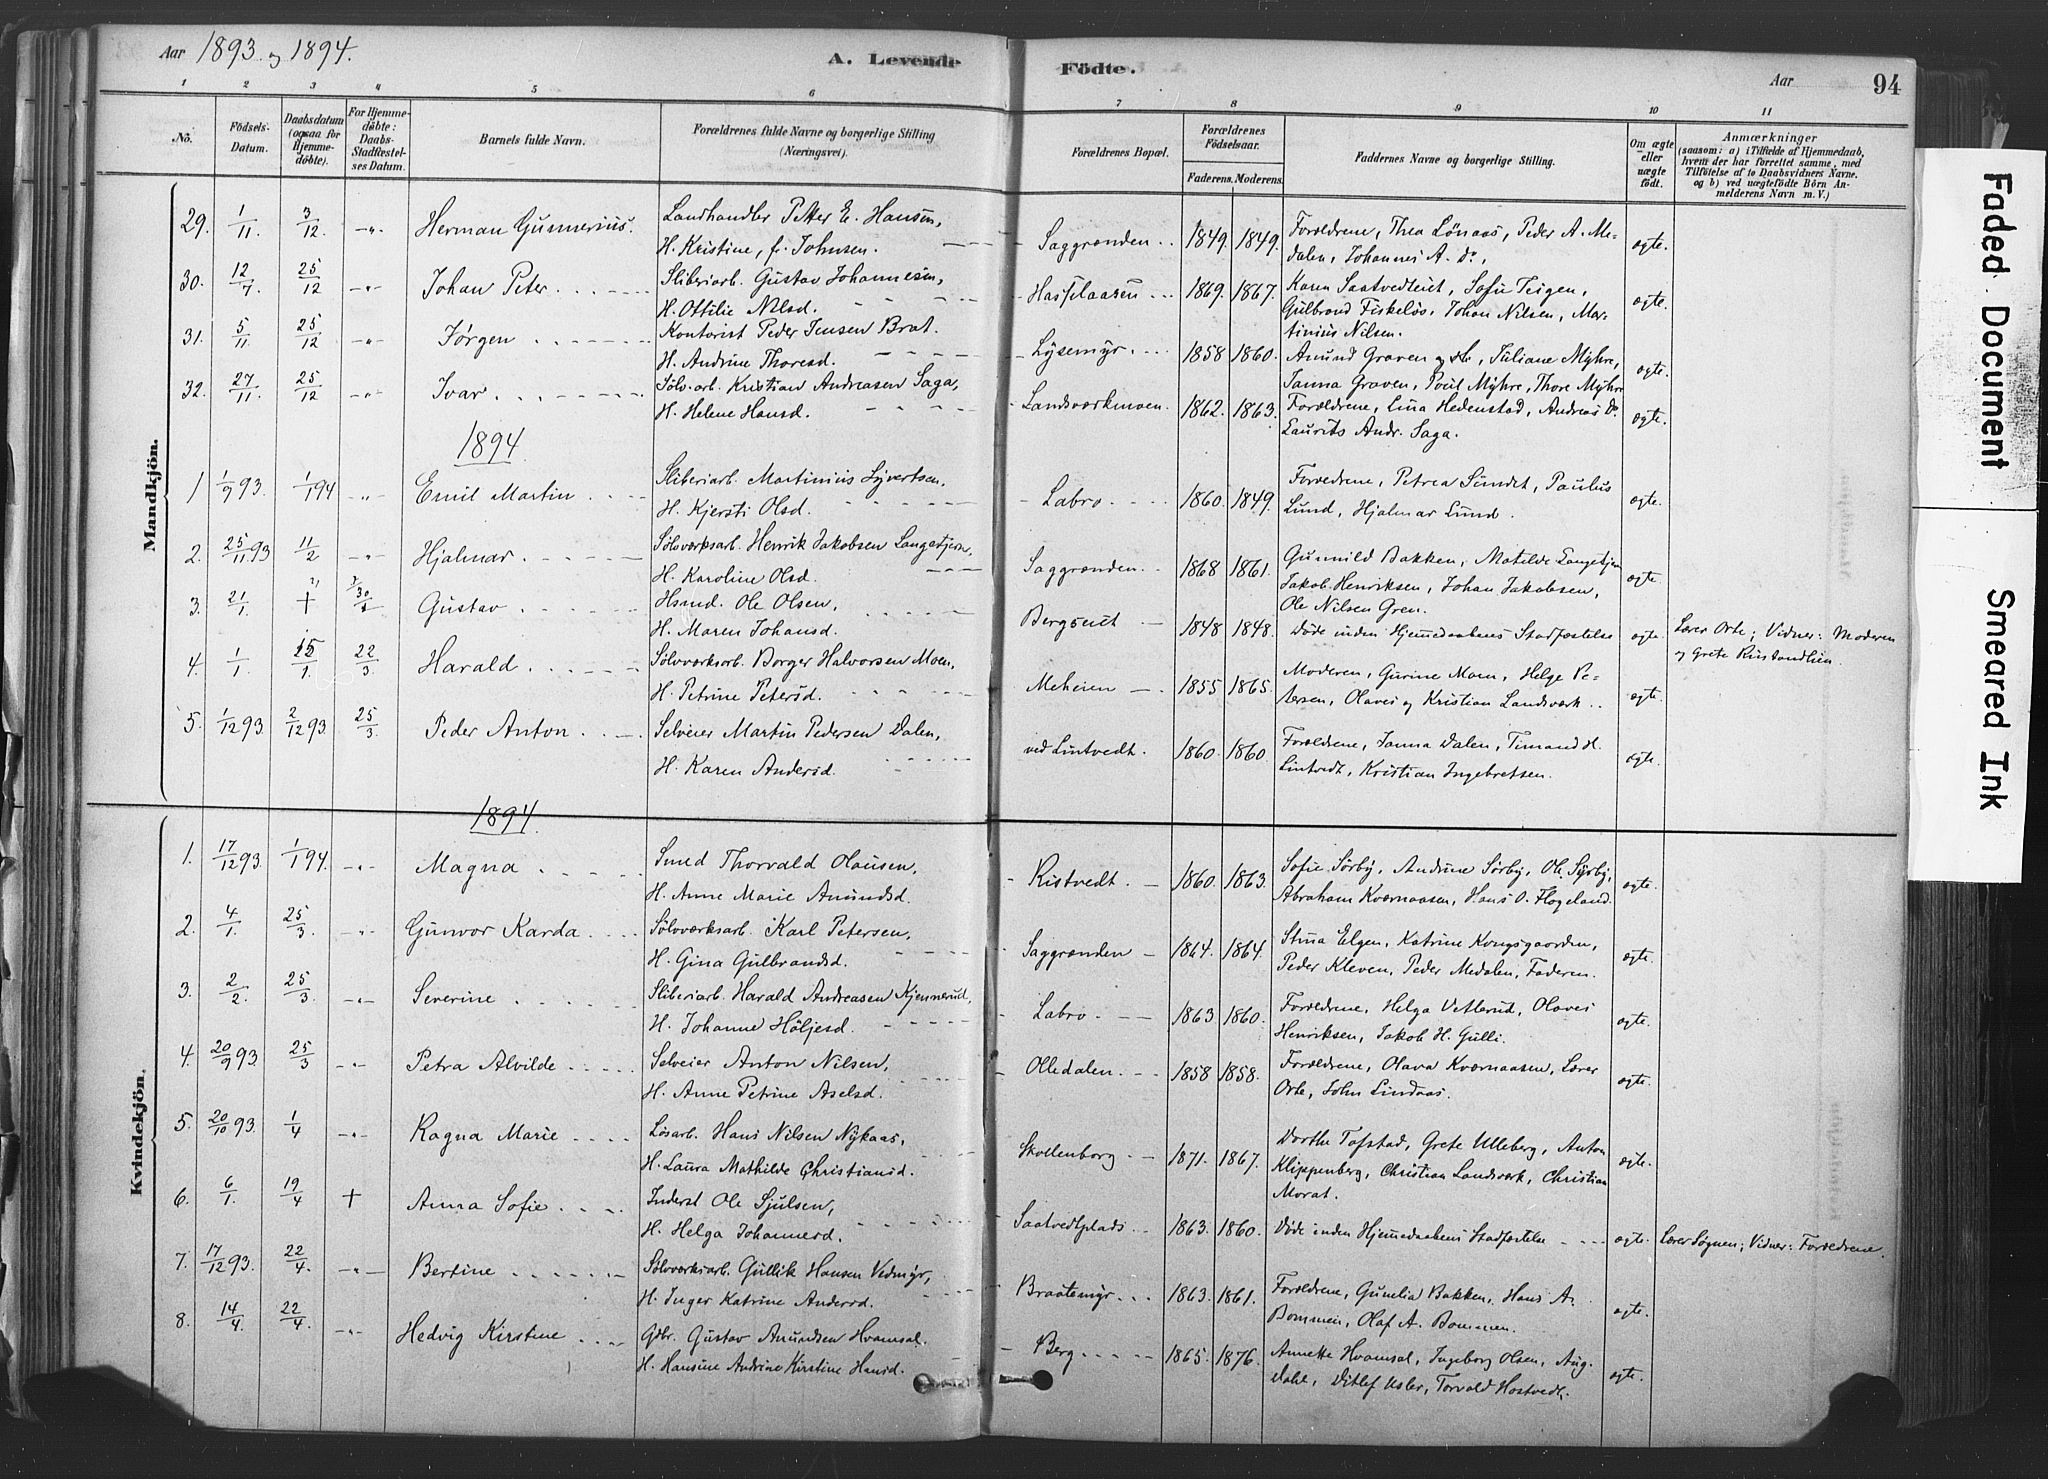 Aar 1893 og 1894.
A. Levende Födte.
Aar 94
1 2 3 4 5 6 7 8 9 10 11
No. Födsels-Datum. Daabsdatum (ogsaa for Hjemmedöbte). For Hjemmedöbte: Daabs-Stadfæstelses Datum. Barnets fulde Navn. Forældrenes fulde Navne og borgerlige Stilling (Næringsvei). Forældrenes Bopæl. Forældrenes Födselsaar. Faderens. Moderens. Faddernes Navne og borgerlige Stilling. Om ægte eller uægte födt. Anmærkninger (saasom: a) i Tilfælde af Hjemmedaab, hvem der har forrettet samme, med Tilföielse af to Daabsvidners Navne. og b) ved uægtefödte Börn Anmelderens Navn m. V.)
Mandkjön.
29. 1/11. 3/12 -"- Herman Gunnerius. Landhandler Petter E. Hansen, H. Kristine, f. Johnsen. Saggrænden 1849. 1849. Forældrene, Thea Lönaas, Peder A. Medalen, Johannes A. Do., ægte.
30. 12/7. 25/12 -"- Johan Peter Sliberiarb. Gustav Johannesen, H. Ottilie Nilsd. Hasselaasen 1869. 1867. Karen Saatvedteiet, Sofie Teigen, Gulbrand Fiskelös, Johan Nilsen, Martinius Nilsen. ægte.
31. 5/11. 25/12 -"- Jörgen Kontorist Peder Jensen Brat. H. Andrine Thoresd. Lysemyr 1858 1860. Amund Graven og H., Juliane Myhre, Janna Graven, Poul Myhre, Thore Myhre ægte.
32. 27/11. 25/12 -"- Ivar Sölv.arb. Kristian Andreasen Saga, H. Helene Hansd. Landsværkmoen. 1862. 1863. Forældrene, Lina Hedenstad, Andreas Do. Laurits Andr. Saga. ægte.
1894
1 1/9 93. 1/1 94 -"- Emil Martin Sliberiarb. Martinius Syvertsen, H. Kjersti Olsd. Labro 1860. 1849. Forældrene, Petrea Sundet, Paulus Lund, Hjalmar Lund. ægte.
2. 25/11 93 11/2 -"- Hjalmar Sölvværksarb. Henrik Jakobsen Langetjern, H. Karoline Olsd. Saggrænden 1868 1861. Gunnild Bakken, Matilde Langetjern Jakob Henriksen, Johan Jakobsen, Ole Nilsen Gren. ægte.
3. 21/1. + Gustav Hsmd. Ole Olsen, H. Maren Johansd. Bergseiet 1848 1848. Döde inden Hjemmedaabens Stadfæstelse ægte. Lærer Orte; Vidner: Moderen og Grete Ristandlien.
4. 1/1 15/1. 22/3. Harald Sölvværksarb. Borger Halvorsen Moen, H. Petrine Petersd. Meheien 1855 1865. Moderen, Gurine Moen, Helge Petersen, Olaves og Kristian Landsværk ægte.
5. 1/12 93. 2/12 93. 25/3. Peder Anton Selveier Martin Pedersen Dalen, H. Karen Andersd. ved Lintvedt. 1860. 1860. Forældrene, Janna Dalen, Timand H. Lintvedt, Kristian Ingebretsen. ægte.
Kvindekjön.
1894.
1. 17/12 93. 1/1 94. -"- Magna Smed Thorvald Olausen, H. Anne Marie Amundsd. Ristvedt. 1860. 1863. Sofie Sörby, Andrine Sörby, Ole Sörby, Abraham Kværnaasen, Hans O. Flogeland. ægte.
2. 4/1. 25/3. -"- Gunvor Karda Sölvværksarb. Karl Petersen, H. Gina Gulbrandsd. Saggrænden 1864. 1864. Stina Elgen, Katrine Kongsgaarden, Peder Kleven, Peder Medalen, Faderen. ægte.
3. 2/2. 25/3. -"- Severine Sliberiarb. Harald Andreasen Kjennerud, H. Johanne Höljesd. Labro 1863 1860. Forældrene, Helga Vetterud, Olaves Henriksen, Jakob H. Gulli. ægte.
4. 20/9 93. 25/3 -"- Petra Alvilde Selveier Anton Nilsen, H. Anne Petrine Axelsd. Olledalen 1858 1858. Forældrene, Olava Kværnaasen, Lærer Orte, John Lindaas. ægte.
5. 20/10 93. 1/4 -"- Ragna Marie Lösarb. Hans Nilsen Nykaas, H. Laura Mathilde Christiansd. Skollenborg 1871. 1867. Dorthe Tofstad, Grete Ulleberg, Anton Klippenberg, Christian Landsværk, Christian Morat. ægte.
6. 6/1. 19/4 + Anna Sofie Inderst Ole Sjulsen, H. Helga Johannesd. Saatvedtplads 1863. 1860. Döde inden Hjemmedaabens Stadfæstelse ægte. Lærer Sögnen; Vidner: Forældrene.
7. 17/12 93. 22/4. -"- Bertine Sölvværksarb. Gullik Hansen Vedmyr, H. Inger Katrine Andersd. Braatemyr 1863. 1861. Forældrene, Gunelia Bakken, Hans A. Bommen, Olaf A. Bommen. ægte.
8. 14/4 22/4. -"- Hedvig Kirstine Gdbr. Gustav Amundsen Hvamsal. H. Hansine Andrine Kirstine Hansd. Berg 1865. 1876. Annette Hvamsal, Ingeborg Olsen, Aug. Dahl, Ditlef Usler, Torvald Hostvedt. ægte.
Faded Document
Smeared Ink